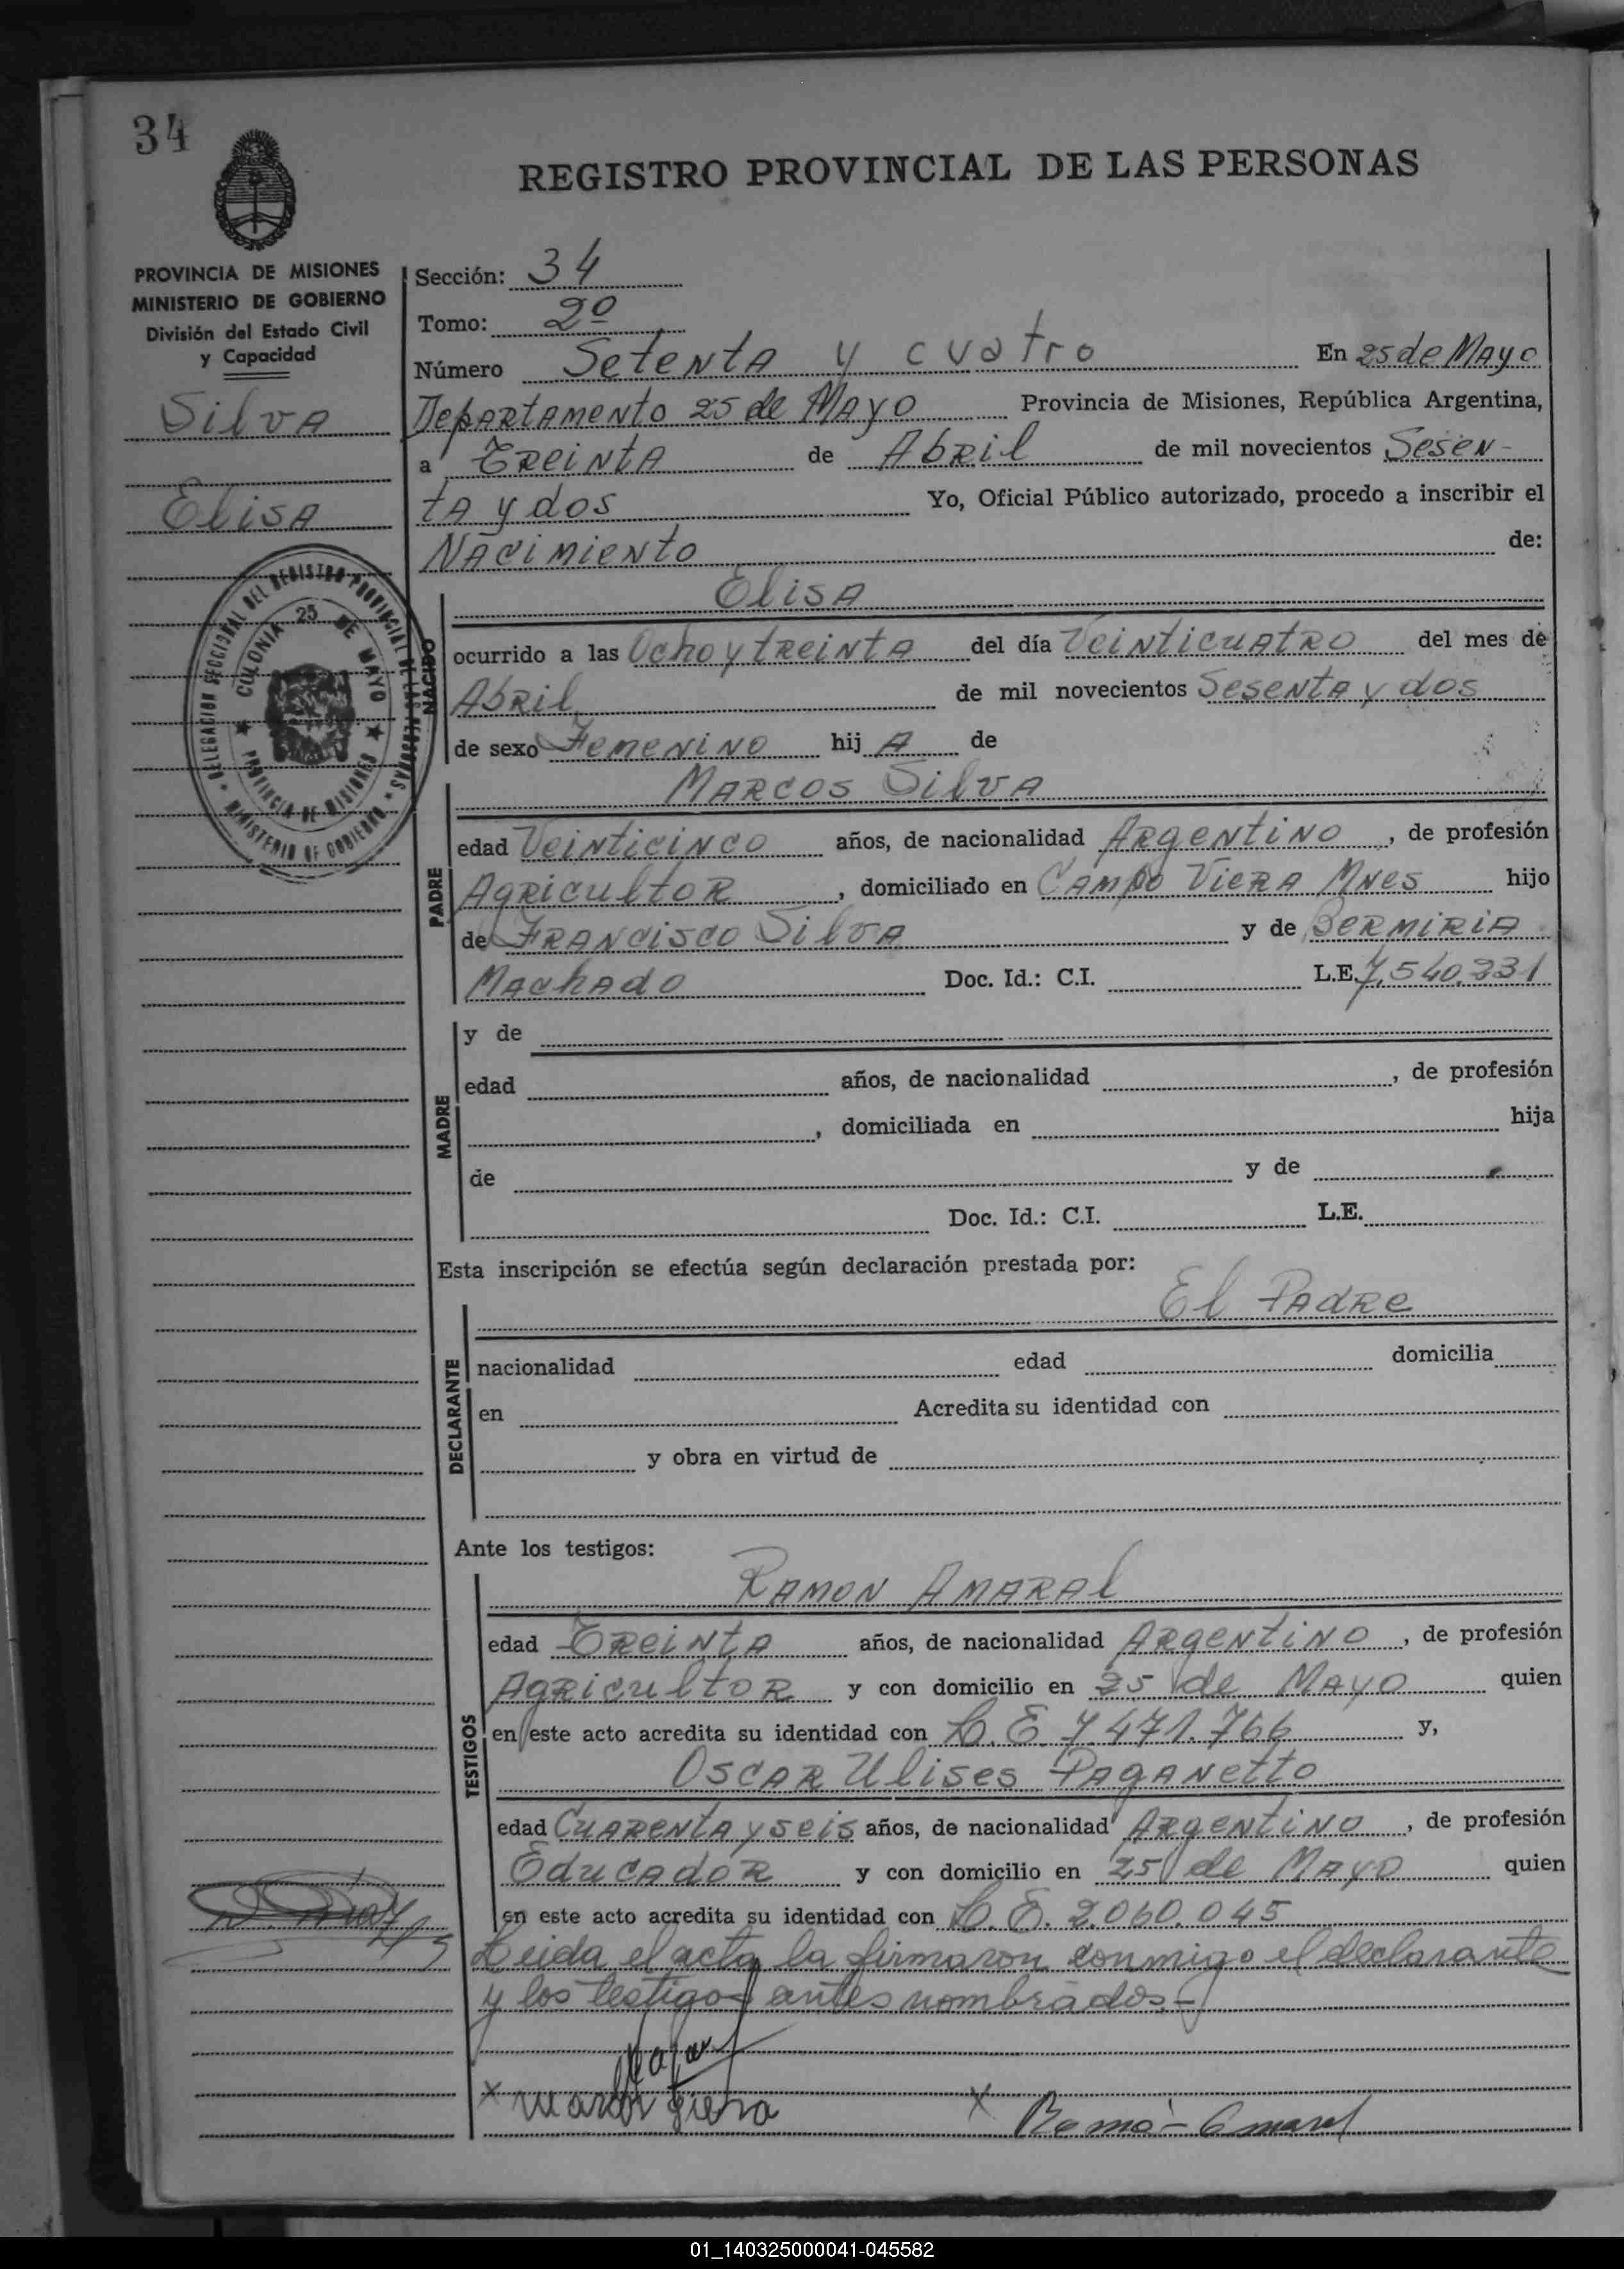 34
REGISTRO PROVINCIAL DE LAS PERSONAS
PROVINCIA DE MISIONES
MINISTERIO DE GOBIERNO
División del Estado Civil
y Capacidad
Silva
Elisa
DELEGACION SECCIONAL DEL REGISTRO PROVINCIAL DE LAS PERSONAS
COLONIA 25 DE MAYO
PROVINCIA DE MISIONES
MINISTERIO DE GOBIERNO
Sección: 34
Tomo: 2º
Número Setenta y cuatro En 25 de Mayo
Departamento 25 de Mayo Provincia de Misiones, República Argentina,
a Treinta de Abril de mil novecientos Sesen-
ta y dos Yo, Oficial Público autorizado, procedo a inscribir el
Nacimiento de:
NACIDO
Elisa
ocurrido a las Ocho y treinta del día Veinticuatro del mes de
Abril de mil novecientos Sesenta y dos
de sexo Femenino hij a de
PADRE
Marcos Silva
edad Veinticinco años, de nacionalidad Argentino, de profesión
Agricultor, domiciliado en Campo Viera Mnes hijo
de Francisco Silva y de Bermiria
Machado Doc. Id.: C.I. L.E. 7.540.331
MADRE
y de
edad años, de nacionalidad , de profesión
, domiciliada en hija
de y de
Doc. Id.: C.I. L.E.
Esta inscripción se efectúa según declaración prestada por:
El Padre
DECLARANTE
nacionalidad edad domicilia
en Acredita su identidad con
y obra en virtud de
Ante los testigos:
TESTIGOS
Ramon Amaral
edad Treinta años, de nacionalidad Argentino, de profesión
Agricultor y con domicilio en 25 de Mayo quien
en este acto acredita su identidad con L.E. 7.471.766 y,
Oscar Ulises Paganetto
edad Cuarenta y seis años, de nacionalidad Argentino, de profesión
Educador y con domicilio en 25 de Mayo quien
en este acto acredita su identidad con L.E. 2.060.045
Leida el acta la firmaron conmigo el declarante
y los testigos antes nombrados.-
x
x
01_140325000041-045582